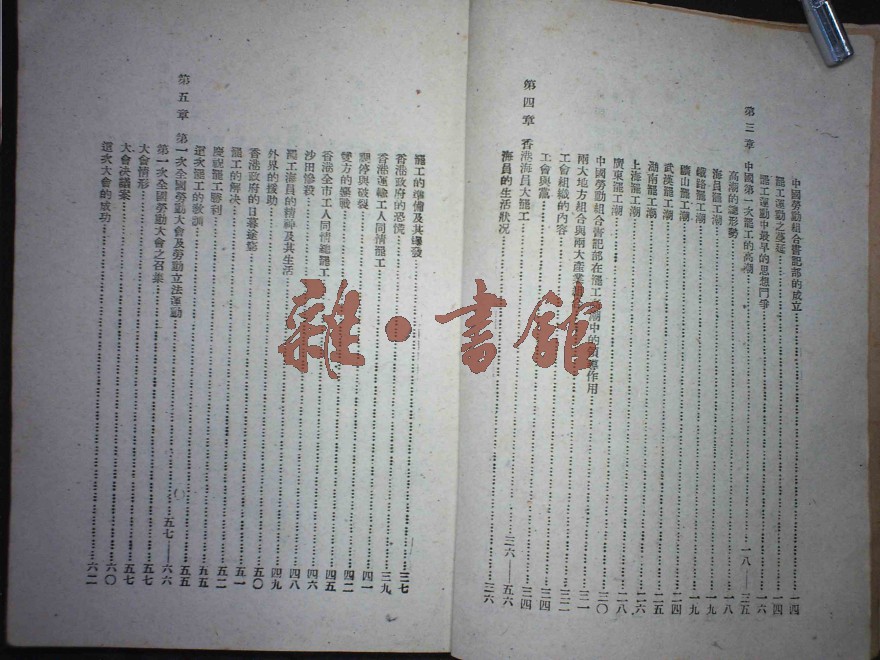 中國勞動組合書記部的成立……一四
罷工運動之蔓延……一四
罷工運動中最早的思想鬥爭……一六
第三章 中國第一次罷工的高潮……一八——三五
高潮的總形勢……一八
海員罷工潮……一九
鐵路罷工潮……一九
礦山罷工潮……二四
武漢罷工潮……二四
湖南罷工潮……二五
上海罷工潮……二六
廣東罷工潮……二八
中國勞動組合書記部在罷工 潮中的 導作用……三〇
兩大地方組合與兩大產業……三一
工會組織的內容……三二
工會與黨……三四
第四章 香港海員大罷工……三六——五六
海員的生活狀况……三六
罷工的準備及其爆發……三七
香港政府的恐慌
香港運輸工人同情罷工……三九
調停與破裂……四一
雙方的藥戰……四二
香港全市工人同情總罷工……四五
沙田慘殺……四六
罷工海員的精神及其生活……四八
外界的援助……四九
香港政府的日暮途窮……五〇
罷工的解決……五一
慶祝罷工勝利……五二
這次罷工的教訓……五五
第五章 第一次全國勞動大會及勞動立法運動……五七——六六
第一次全國勞動大會之召集……五七
大會情形……五七
大會決議案……六〇
這次大會的成功……六二
雜·書館